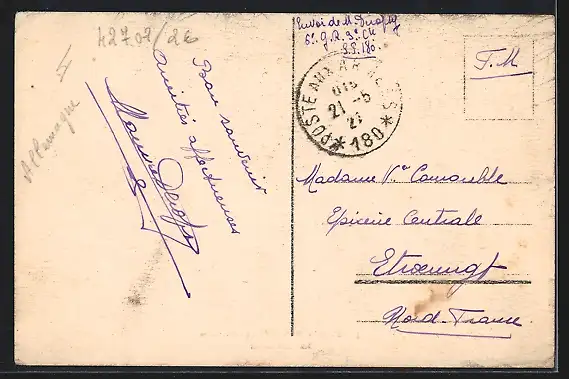 42707/26
Allemagne
Bon souvenir
amitiés affectueuses
Envoi de M.
6e g.R. 3e Cie
S.P. 180
F.M
POSTE AUX ARMEES
21-5
27
*180*
Madame Ve Camouble
Epicerie Centrale
Etroeungt
Nord-France